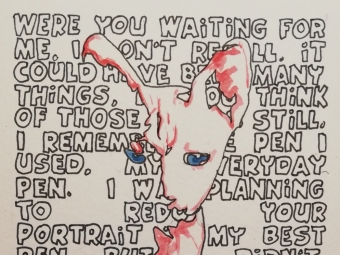 WERE YOU WAITING FOR
ME. I DON'T RECALL. IT
COULD HAVE BEEN MANY
THINGS, YOU THINK
OF THOSE STILL.
I REMEMBER THE PEN I
USED. MY EVERYDAY
PEN. I WAS PLANNING
TO REDO YOUR
PORTRAIT MY BEST
PEN BUT DIDN'T